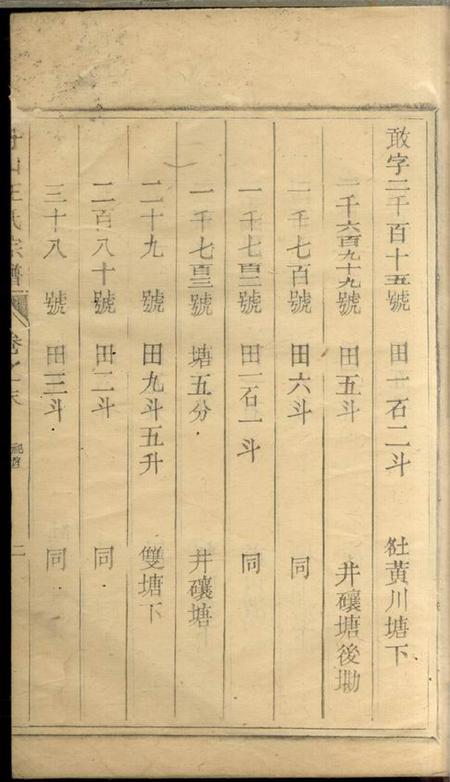 敢字二千百十五號 田一石二斗 社黃川塘下
一千六百九十九號 田五斗 井磉塘後墈
一千七百號 田六斗 同
一千七百二號 田一石一斗 同
一千七百三號 塘五分 井磉塘
二十九號 田九斗五升 雙塘下
二百八十號 田二斗 同
三十八號 田三斗 同
王氏宗譜 卷之末 二